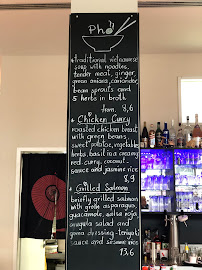 Phở
* traditional vietnamese
soup with noodles,
tender meat, ginger,
green onions, coriander,
bean sprouts and
5 herbs in broth
from 8,6
* Chicken Curry
roasted chicken breast
with green beans,
sweet potatoe, vegetables,
herbs, basil in a creamy
red curry, coconut-
sauce and jasmine rice
8,9
* Grilled Salmon
briefly grilled salmon
with grilled asparagus,
guacamole, salsa roja
arugula salad and
green dressing - teriyaki
sauce and jasmine rice
13,6